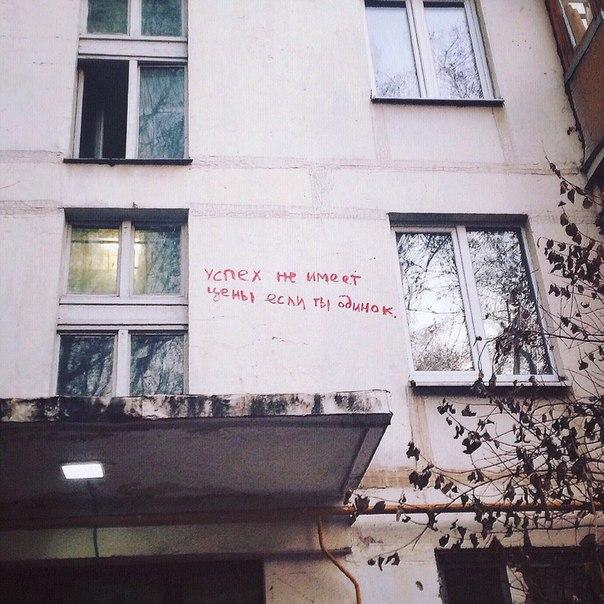 успех не имеет
цены если ты одинок.